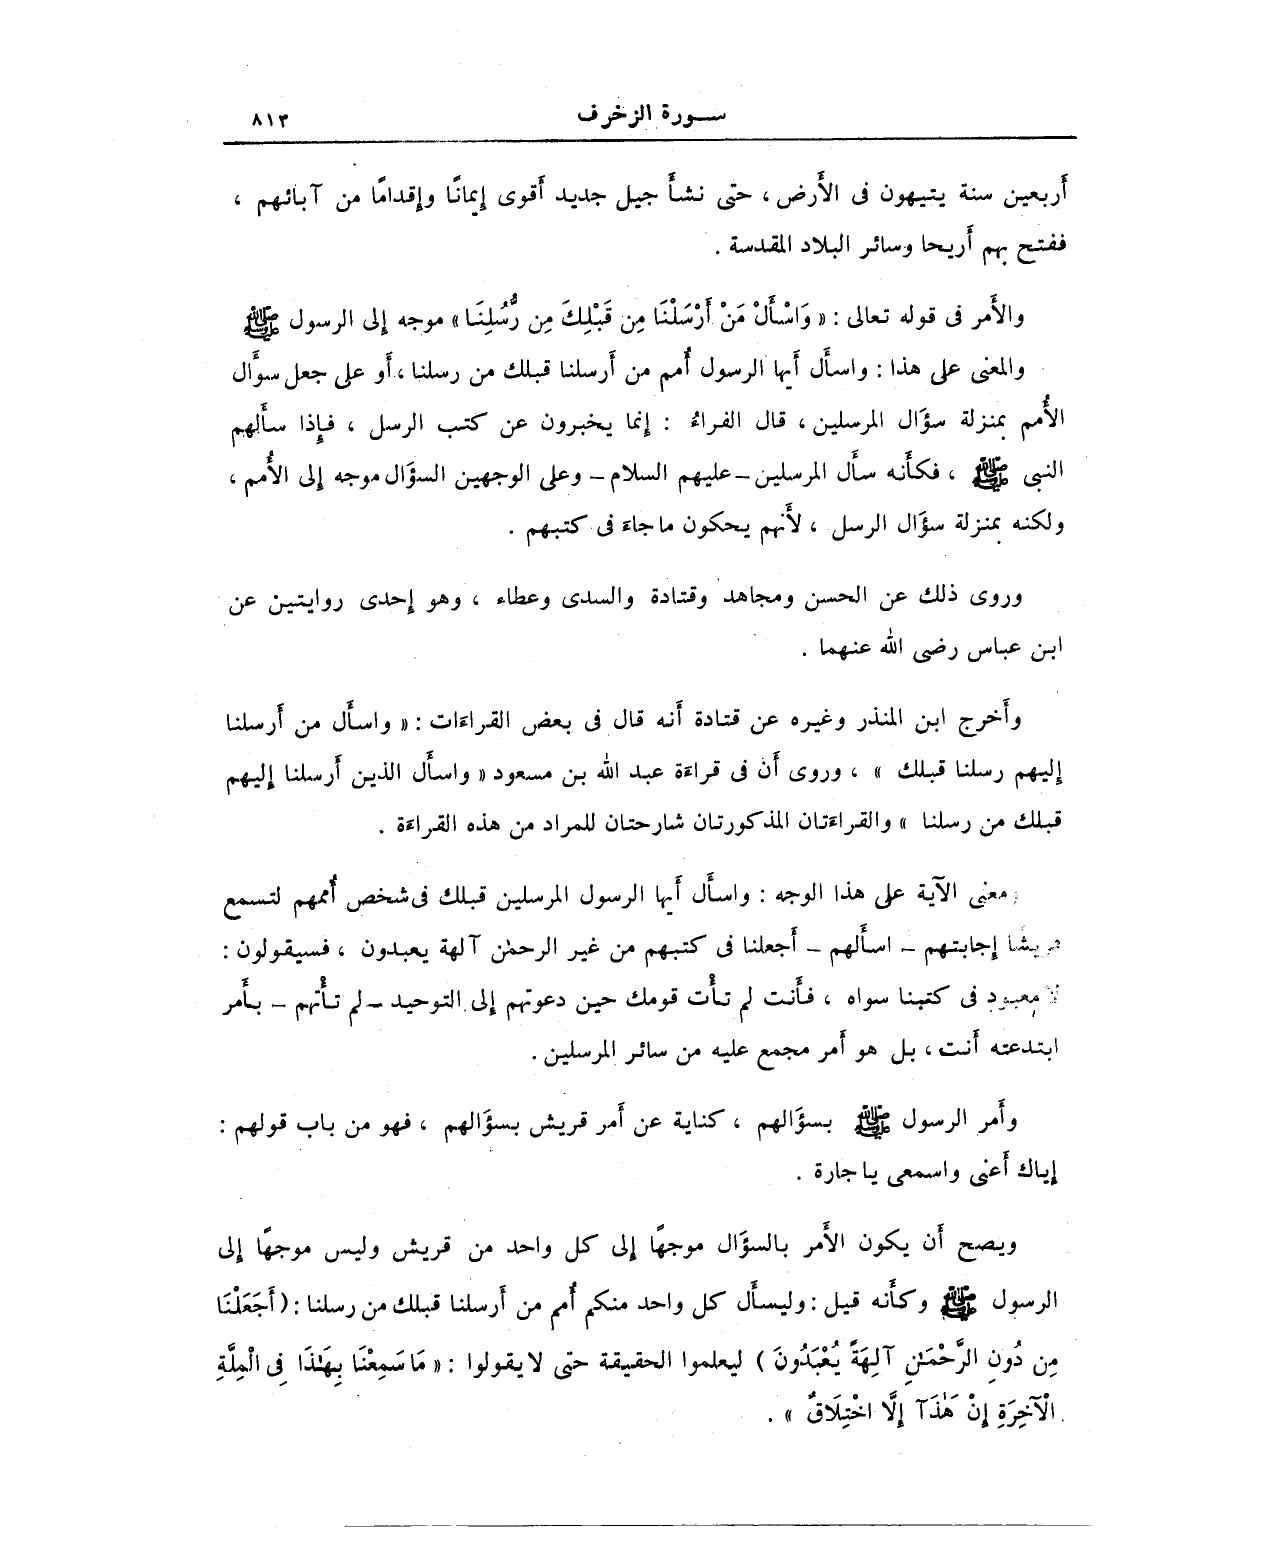 سورة الزخرف ٨١٣
أَربعين سنة يتيهون فى الأَرض ، حتى نشأَ جيل جديد أَقوى إيمانًا وإقدامًا من آبائهم ،
ففتح بهم أَريحا وسائر البلاد المقدسة .
والأَمر فى قوله تعالى : « وَاسْأَلْ مَنْ أَرْسَلْنَا مِن قَبْلِكَ مِن رُّسُلِنَا » موجه إلى الرسول ﷺ
والمعنى على هذا : واسأَل أَيها الرسول أُمم من أَرسلنا قبلك من رسلنا ، أَو على جعل سوَّال
الأُمم بمنزلة سؤَال المرسلين ، قال الفراءُ : إنما يخبرون عن كتب الرسل ، فإِذا سأَلهم
النبى ﷺ ، فكأَنه سأَل المرسلين – عليهم السلام – وعلى الوجهين السؤَال موجه إلى الأُمم ،
ولكنه بمنزلة سؤَال الرسل ، لأَنهم يحكون ما جاءَ فى كتبهم .
وروى ذلك عن الحسن ومجاهد وقتادة والسدى وعطاء ، وهو إحدى روايتين عن
ابن عباس رضى الله عنهما .
وأَخرج ابن المنذر وغيره عن قتادة أَنه قال فى بعض القراءَات : « واسأَل من أَرسلنا
إليهم رسلنا قبلك » ، وروى أَن فى قراءَة عبد الله بن مسعود « واسأَل الذين أَرسلنا إليهم
قبلك من رسلنا » والقراءَتان المذكورتان شارحتان للمراد من هذه القراءَة .
ومعنى الآية على هذا الوجه : واسأَل أَيها الرسول المرسلين قبلك فى شخص أُممهم لتسمع
قريشًا إجابتهم – اسأَلهم – أَجعلنا فى كتبهم من غير الرحمٰن آلهة يعبدون ، فسيقولون :
لا معبود فى كتبنا سواه ، فأَنت لم تأْت قومك حين دعوتهم إلى التوحيد – لم تأْتهم – بأَمر
ابتدعته أَنت ، بل هو أَمر مجمع عليه من سائر المرسلين .
وأَمر الرسول ﷺ بسؤَالهم ، كناية عن أَمر قريش بسؤَالهم ، فهو من باب قولهم :
إياك أَعنى واسمعى يا جارة .
ويصح أَن يكون الأَمر بالسؤَال موجهًا إلى كل واحد من قريش وليس موجهًا إلى
الرسول ﷺ وكأَنه قيل : وليسأَل كل واحد منكم أُمم من أَرسلنا قبلك من رسلنا : ( أَجَعَلْنَا
مِن دُونِ الرَّحْمَـٰنِ آلِهَةً يُعْبَدُونَ ) ليعلموا الحقيقة حتى لا يقولوا : « مَا سَمِعْنَا بِهَـٰذَا فِى الْمِلَّةِ
الْآخِرَةِ إِنْ هَـٰذَآ إِلَّا اخْتِلَاقٌ » .